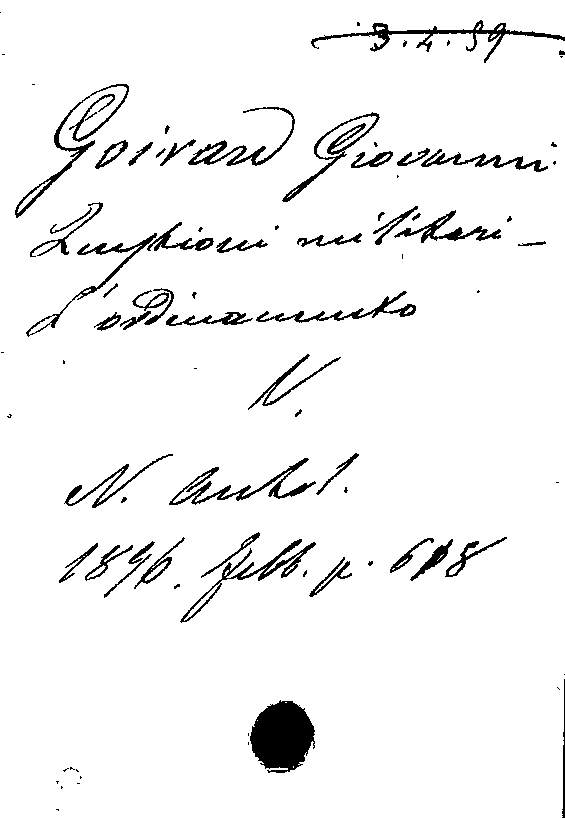 3.4.59
Goiran Giovanni
Quistioni militari —
L'ordinamento
N.
N. Antol.
1896. febb. p. 618